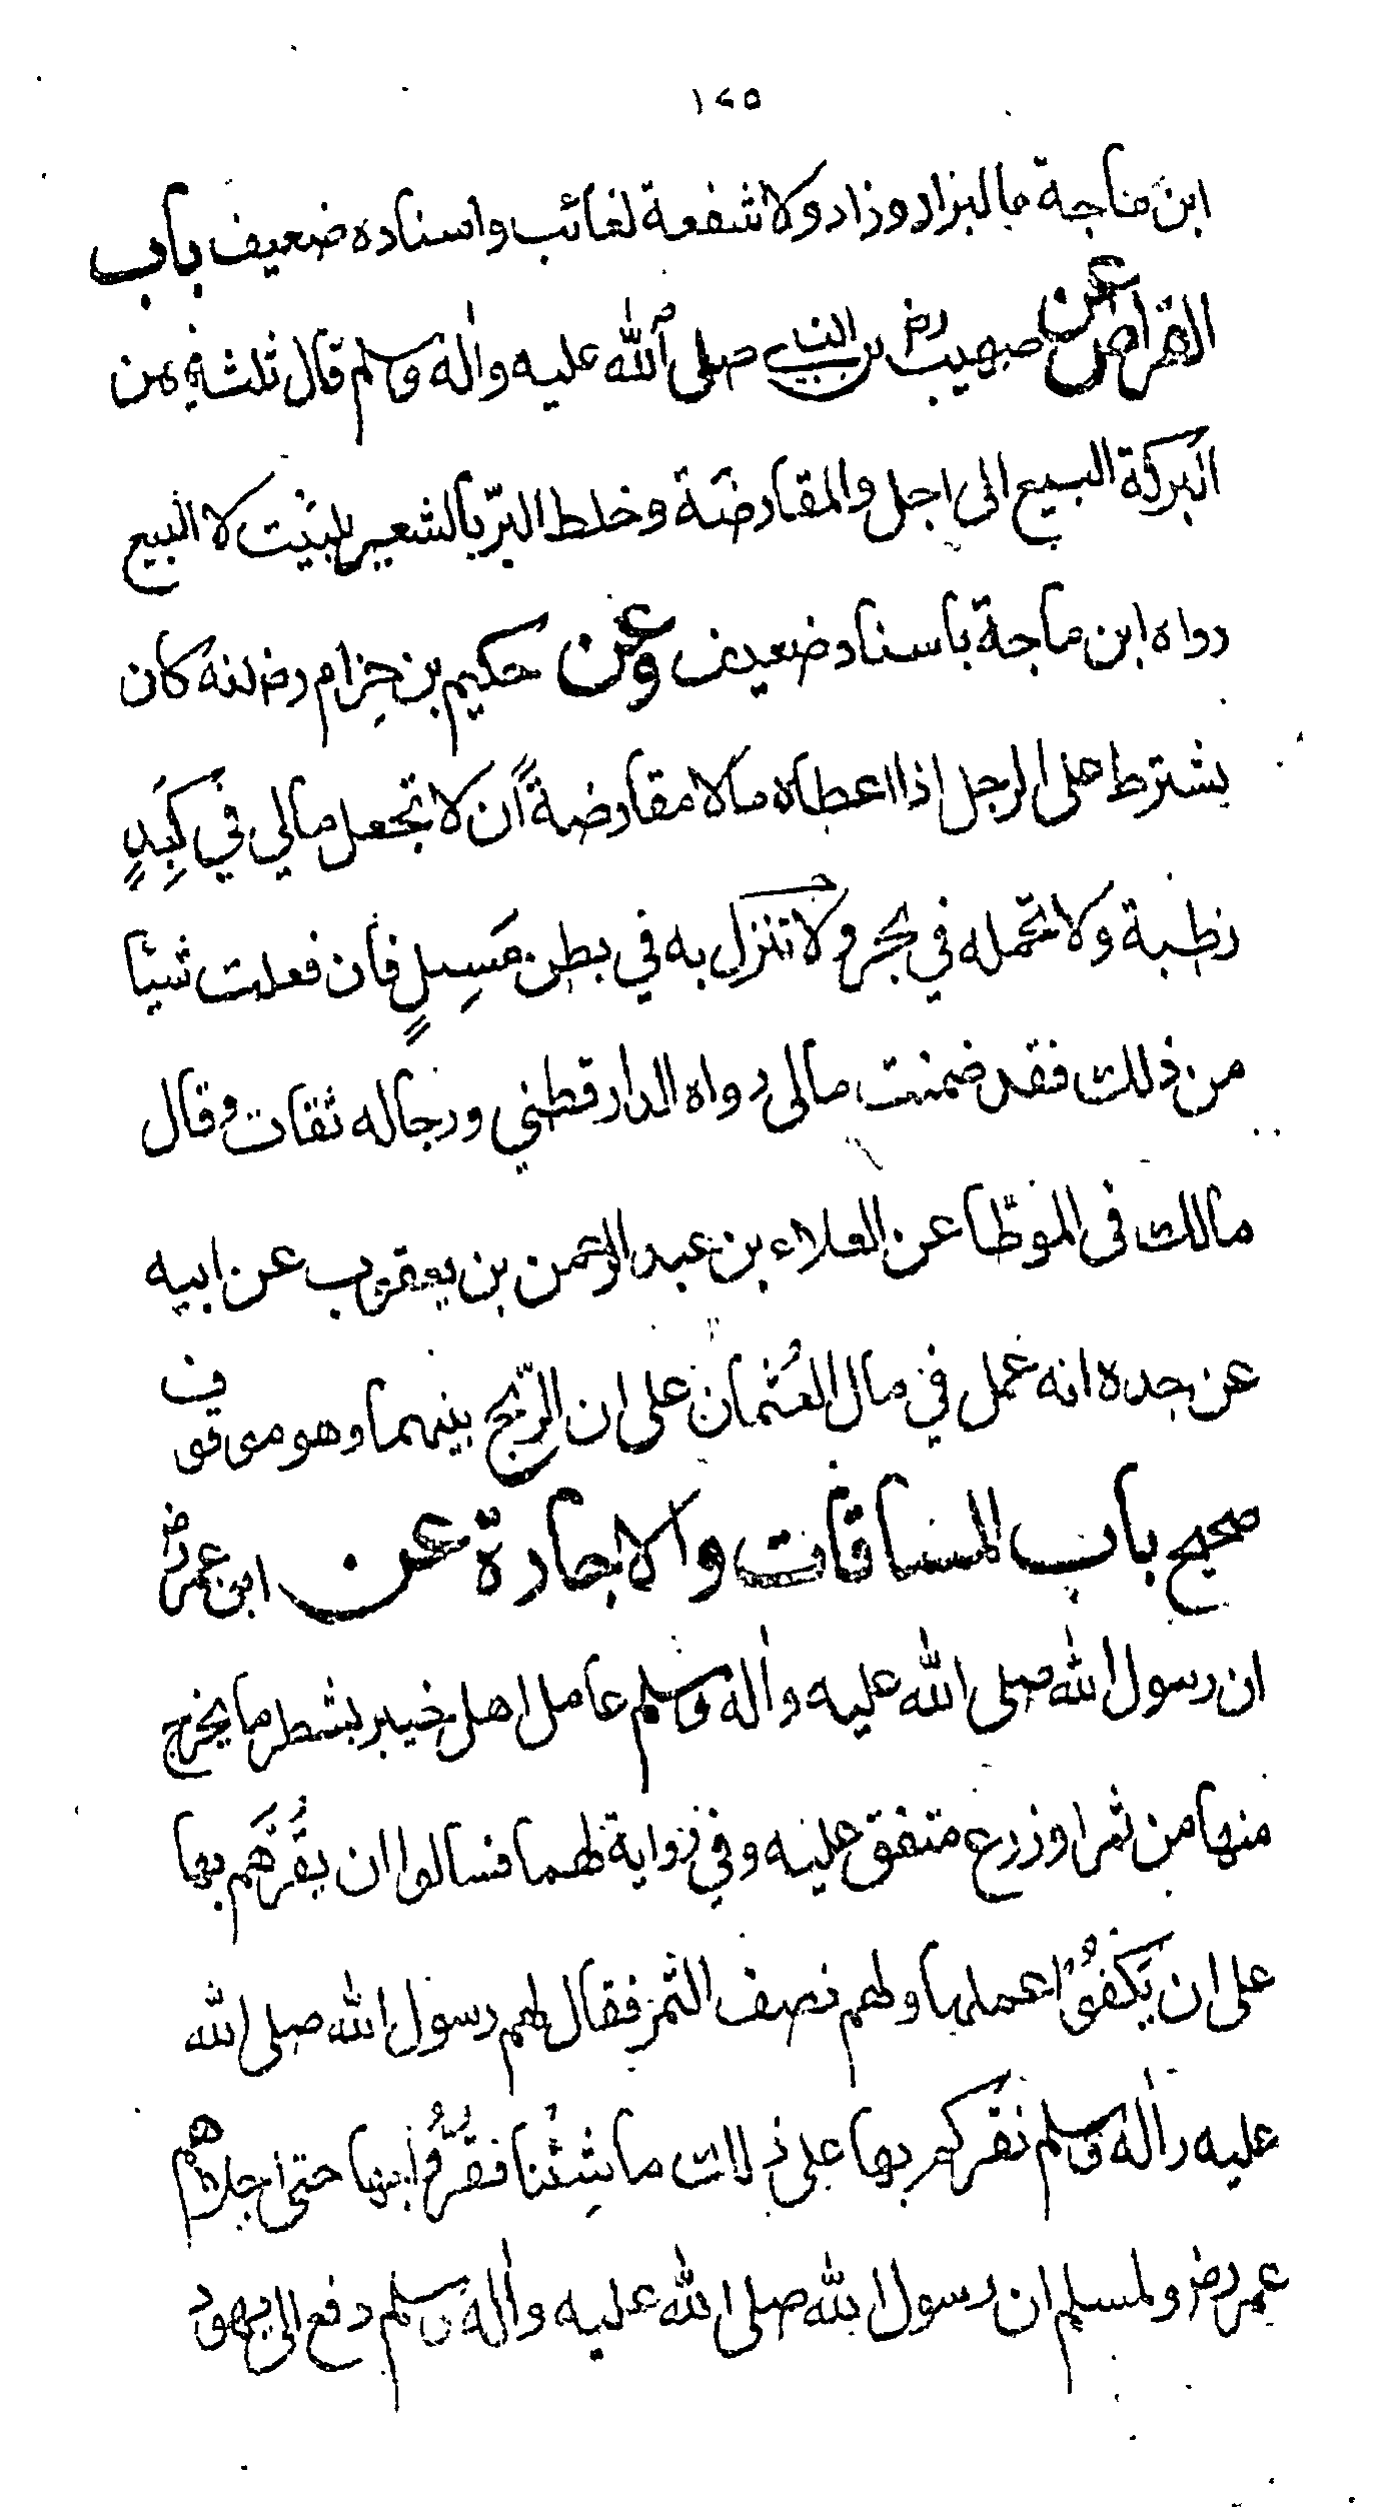 ١٢٥
ابن ماجة والبزار وزاد ولا شفعة لغائب واسناده ضعيف باب
القراض عن صهيب رض ان النبي صلى الله عليه واله وسلم قال ثلث فيهن
البركة البيع الى اجل والمقارضة وخلط البرّ بالشعير للبيت لا البيع
رواه ابن ماجة باسناد ضعيف وعن حكيم بن حِزام رض انه كان
يشترط على الرجل اذا اعطاه مالا مقارضةً ان لا تجعل مالي في كَبِدٍ
رطبة ولا تحمله في بحر ولا تنزل به في بطن مَسِيلٍ فان فعلت شيئا
من ذلك فقد ضمنت مالى رواه الدارقطني ورجاله ثقات وقال
مالك فى الموطّا عن العلاء بن عبد الرحمن بن يعقوب عن ابيه
عن جده انه عمل في مال لعُثمان على ان الرّبح بينهما وهو موقوف
صحيح باب المساقات والاجارة عن ابن عمر رض
ان رسول الله صلى الله عليه واله وسلم عامل اهل خيبر بشطر ما يخرج
منها من ثمر او زرع متفق عليه وفي رواية لهما فسالوا ان يُقرَّهم بها
على ان يَكفُوا عملها ولهم نصف الثمر فقال لهم رسول الله صلى الله
عليه واله وسلم نقركم بها على ذلك ما شِئنا فقَرُّوا بها حتى اجلاهم
عمر رض ولمسلم ان رسول الله صلى الله عليه واله وسلم دفع الى يهود